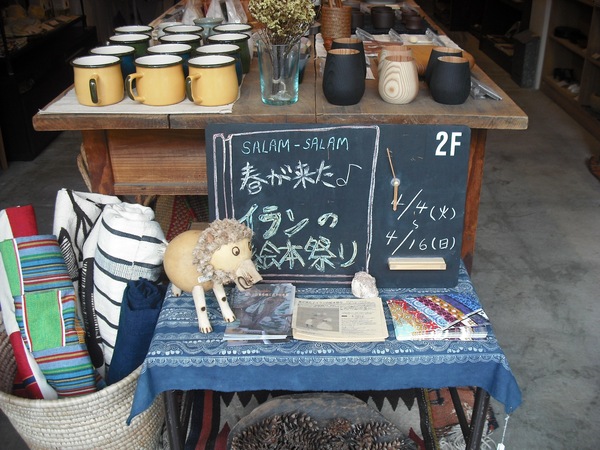 SALAM-SALAM
春が来た♪
イランの
絵本祭り
2F
4/4(火)
〜
4/16(日)